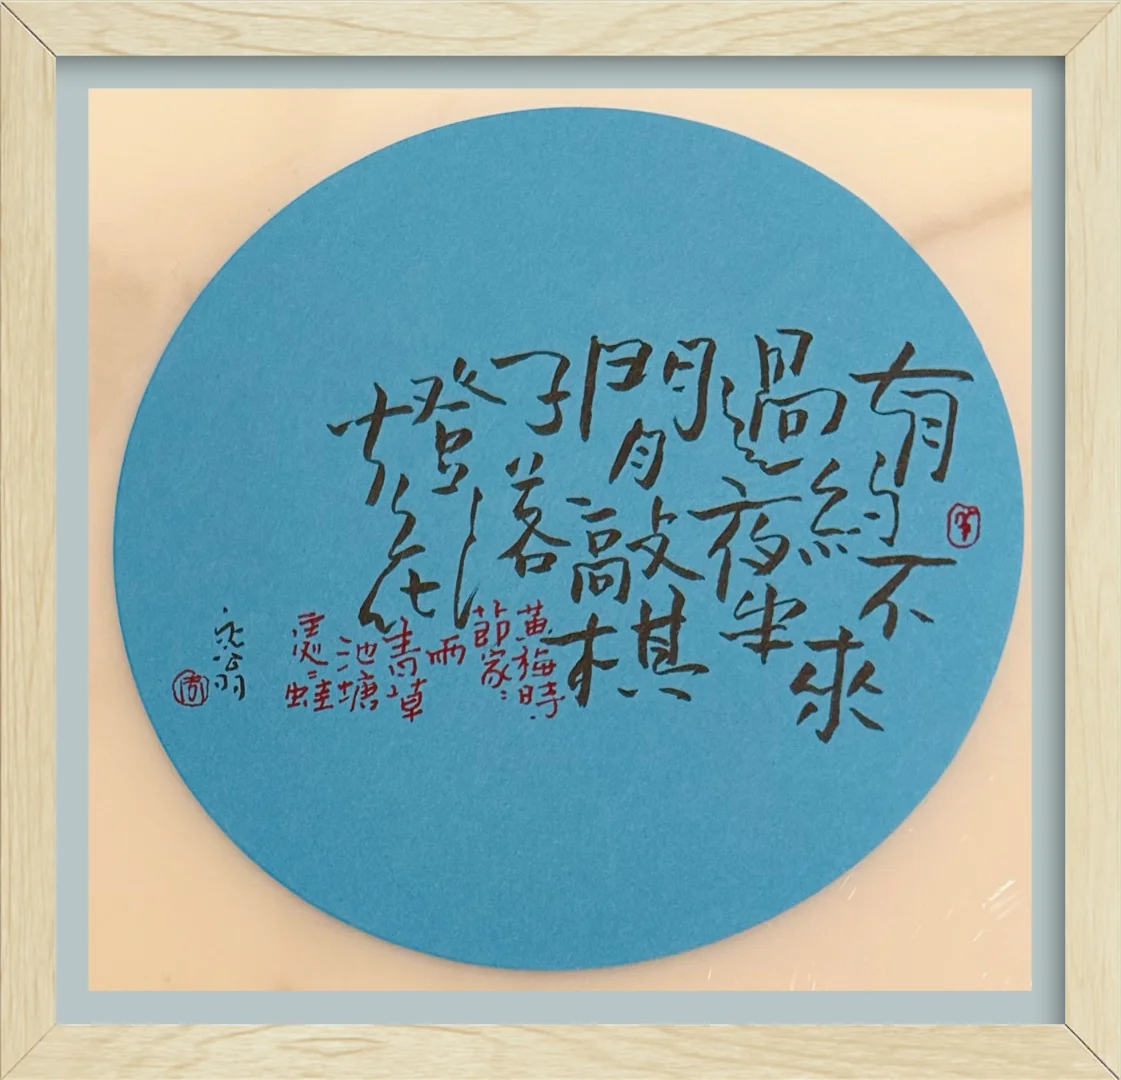 有約不來
過夜半
閒敲棋
子落
燈花
黄梅時
節家〻
雨
青草
池塘
處〻蛙